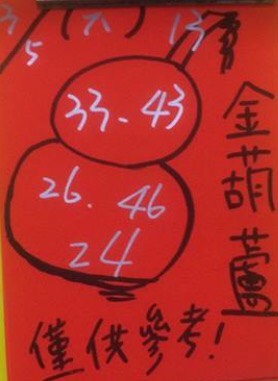 3/5(六)
33-43
26.46
24
金葫蘆
僅供參考!